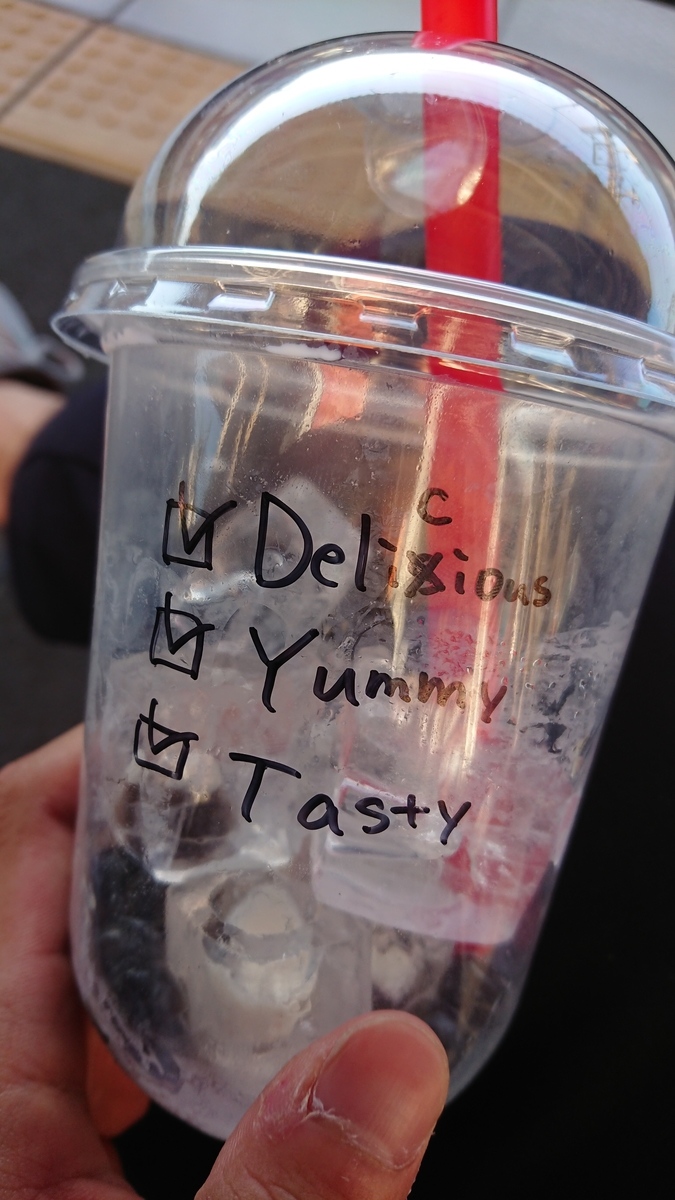 ☑ Delicious
☑ Yummy
☑ Tasty